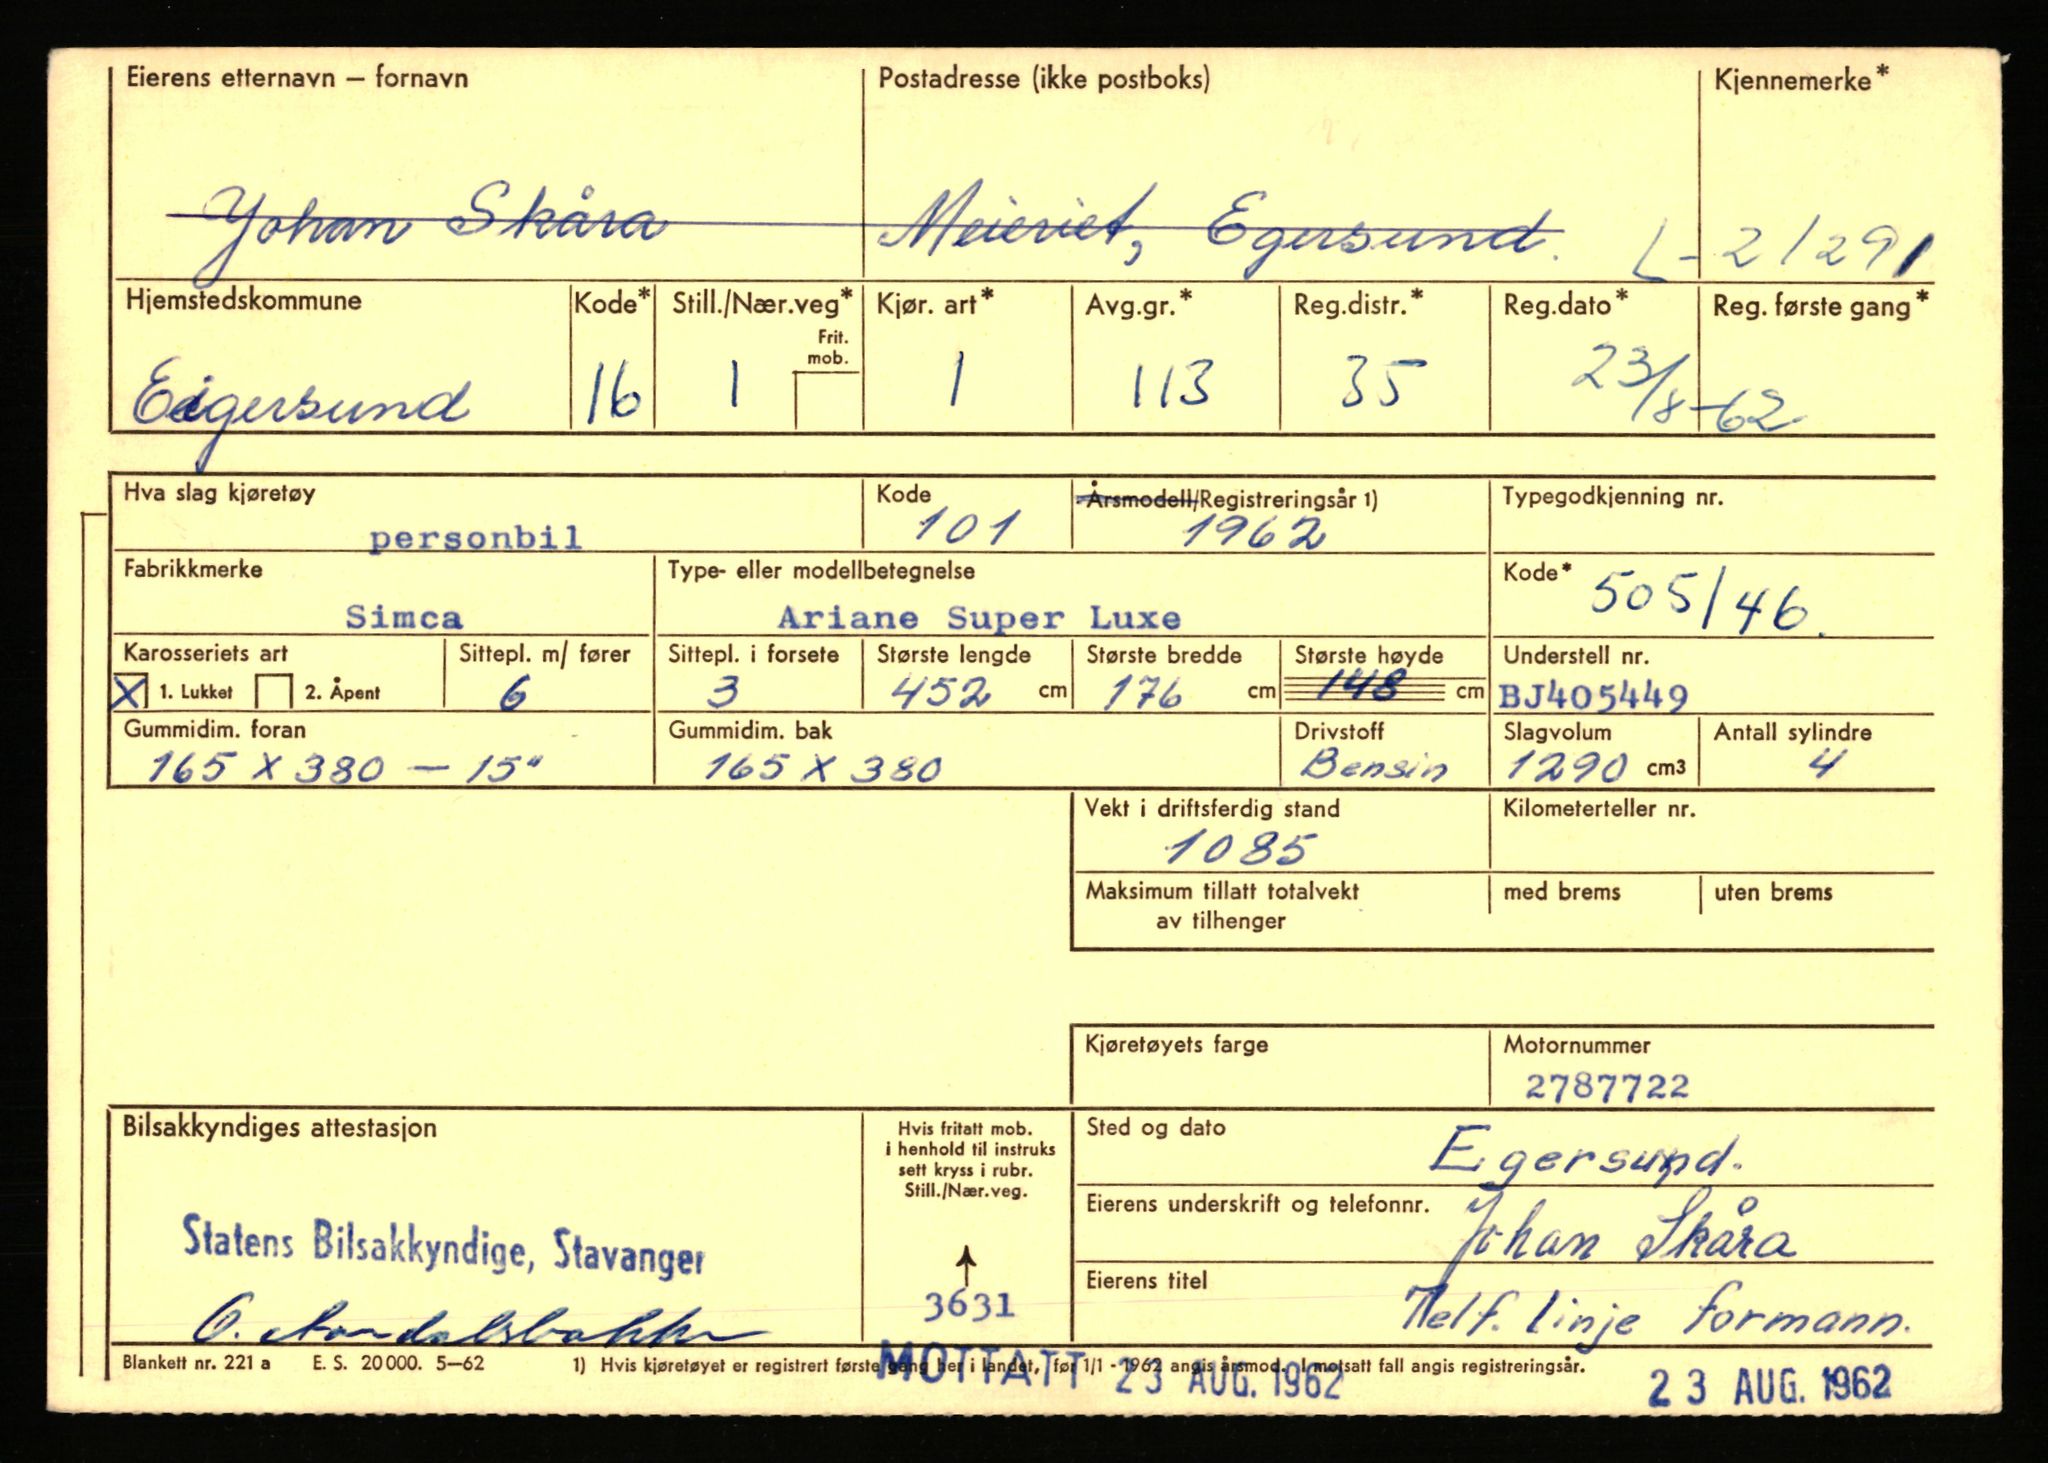 Eierens etternavn – fornavn Postadresse (ikke postboks) Kjennemerke*
Johan Skåra Meieriet, Egersund. L-21291
Hjemstedskommune Kode* Still./Nær.veg* Kjør. art* Avg.gr.* Reg.distr.* Reg.dato* Reg. første gang*
Frit.
mob.
Eigersund 16 1 1 113 35 23/8-62
Hva slag kjøretøy Kode Årsmodell/Registreringsår 1) Typegodkjenning nr.
personbil 101 1962
Fabrikkmerke Type- eller modellbetegnelse Kode*
Simca Ariane Super Luxe 505/46.
Karosseriets art Sittepl. m/ fører Sittepl. i forsete Største lengde Største bredde Største høyde Understell nr.
X 1. Lukket 2. Åpent 6 3 452 cm 176 cm 148 cm BJ405449
Gummidim. foran Gummidim. bak Drivstoff Slagvolum Antall sylindre
165 X 380 – 15" 165 X 380 Bensin 1290 cm3 4
Vekt i driftsferdig stand Kilometerteller nr.
1085
Maksimum tillatt totalvekt med brems uten brems
av tilhenger
Kjøretøyets farge Motornummer
2787722
Bilsakkyndiges attestasjon Hvis fritatt mob. Sted og dato
i henhold til instruks
sett kryss i rubr.
Still./Nær.veg.
Egersund.
Eierens underskrift og telefonnr.
Statens Bilsakkyndige, Stavanger Johan Skåra
Eierens titel
3631 Telf. linje formann.
Blankett nr. 221 a E. S. 20000. 5–62 1) Hvis kjøretøyet er registrert første gang her i landet, før 1/1 - 1962 angis årsmod. I motsatt fall angis registreringsår.
MOTTATT 23 AUG. 1962 23 AUG. 1962